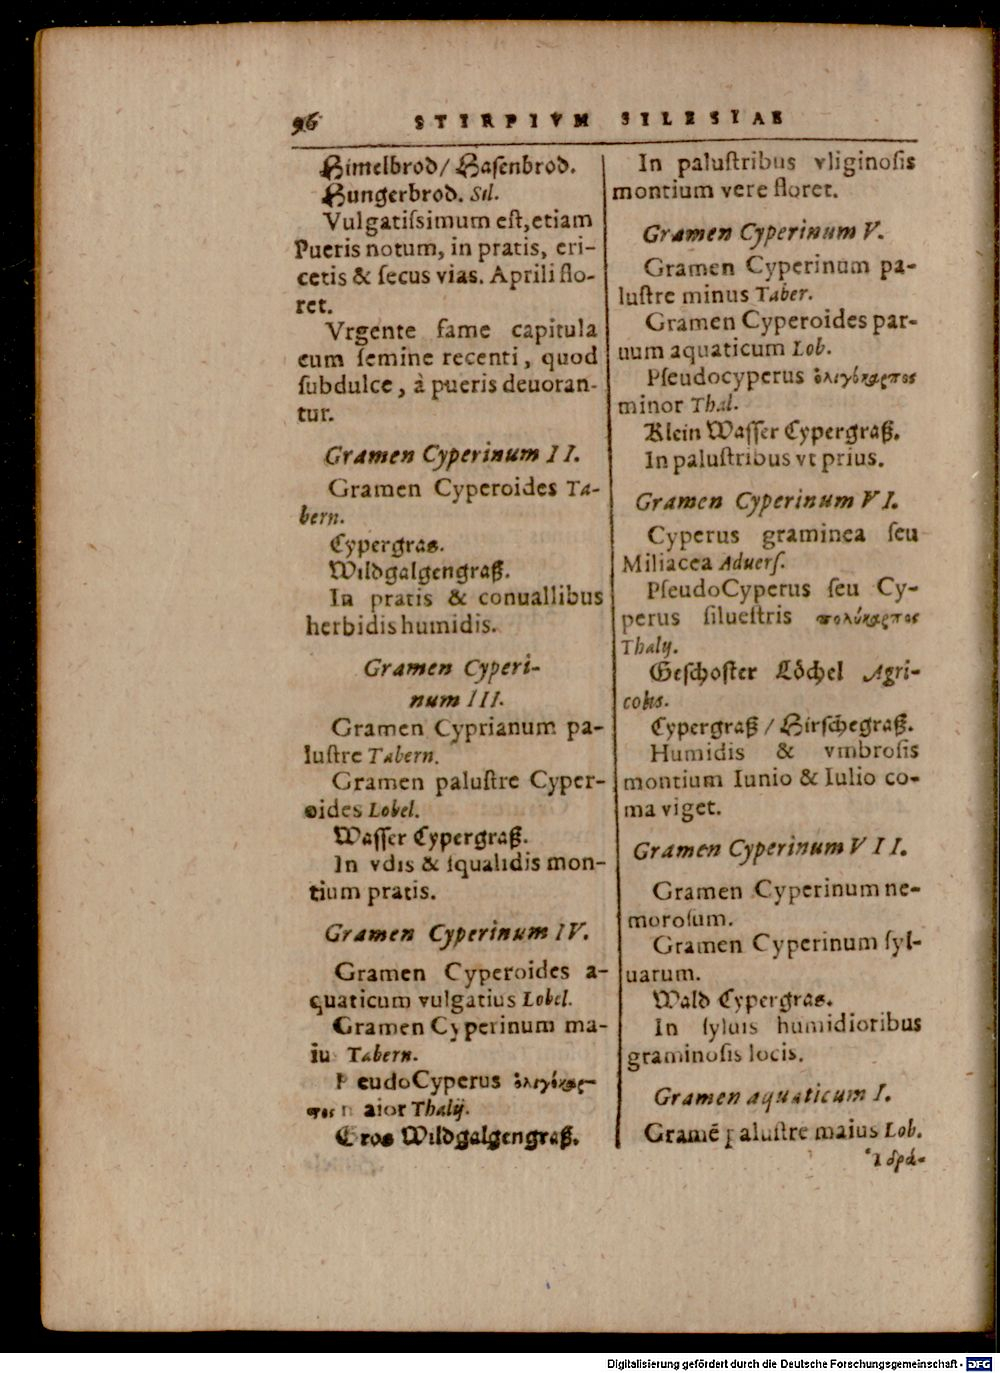 96 STIRPIVM SILESIAE
Himelbrod/ Hasenbrod.
Hungerbrod. Sil.
Vulgatiſsimum eſt, etiam
Pueris notum, in pratis, eri-
cetis & ſecus vias. Aprili flo-
ret.
Vrgente fame capitula
cum ſemine recenti, quod
ſubdulce, à pueris deuoran-
tur.
Gramen Cyperinum II.
Gramen Cyperoides Ta-
bern.
Cypergras.
Wildgalgengraß.
In pratis & conuallibus
herbidis humidis.
Gramen Cyperi-
num III.
Gramen Cyprianum pa-
luſtre Tabern.
Gramen paluſtre Cyper-
oides Lobel.
Waſſer Cypergraß.
In vdis & ſqualidis mon-
tium pratis.
Gramen Cyperinum IV.
Gramen Cyperoides a-
quaticum vulgatius Lobel.
Gramen Cyperinum ma-
iu Tabern.
P eudoCyperus ὀλιγόκαρ-
πος n aior Thalij.
Gros Wildgalgengraß.
In paluſtribus vliginoſis
montium vere floret.
Gramen Cyperinum V.
Gramen Cyperinum pa-
luſtre minus Taber.
Gramen Cyperoides par-
uum aquaticum Lob.
Pſeudocyperus ὀλιγόκαρπος
minor Thal.
Klein Waſſer Cypergraß.
In paluſtribus vt prius.
Gramen Cyperinum VI.
Cyperus graminea ſeu
Miliacea Aduerſ.
PſeudoCyperus ſeu Cy-
perus ſilueſtris πολύκαρπος
Thalij.
Geſchoſter Löchel Agri-
colis.
Cypergraß / Hirſchegraß.
Humidis & vmbroſis
montium Iunio & Iulio co-
ma viget.
Gramen Cyperinum VII.
Gramen Cyperinum ne-
moroſum.
Gramen Cyperinum ſyl-
uarum.
Wald Cypergras.
In ſyluis humidioribus
graminoſis locis.
Gramen aquaticum I.
Gramẽ paluſtre maius Lob.
Ὑδρά-
Digitalisierung gefördert durch die Deutsche Forschungsgemeinschaft - DFG